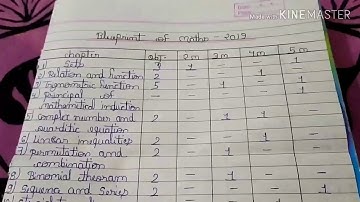 Made with KINEMASTER
Blueprint of maths - 2019
chapter obj. 2m 3m 4m 5m
1) Sets 3 1 — — 1
2) Relation and function 2 — — 1 —
3) Trigonometric function 5 — 1 1
4) principal of — — — — —
mathematical induction
5) complex number and 2 — 1 1 —
quarditic equation
6) Linear inequalities 2 — — 1 —
7) permutation and 2 — 1 — —
combination
8) Binomial theoram 2 — 1 — —
9) Sequence and Series 2 — — — 1